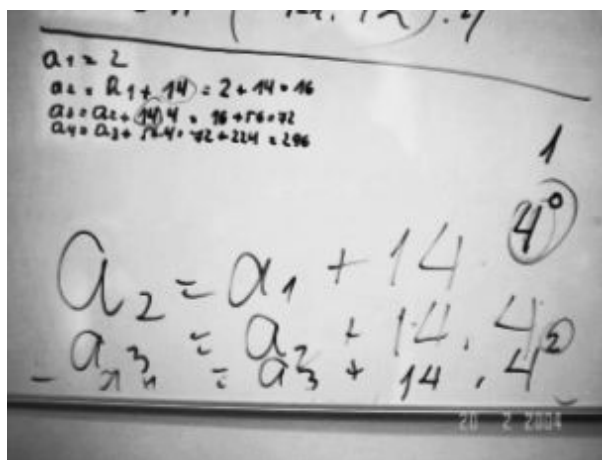 a₁ = 2
a₂ = a₁ + 14 = 2 + 14 = 16
a₃ = a₂ + 14·4 = 16 + 56 = 72
a₄ = a₃ + 56·4 = 72 + 224 = 296
1
4⁰
a₂ = a₁ + 14
a₃ = a₂ + 14 . 4
= a₃ + 14 . 4²
20 2 2004